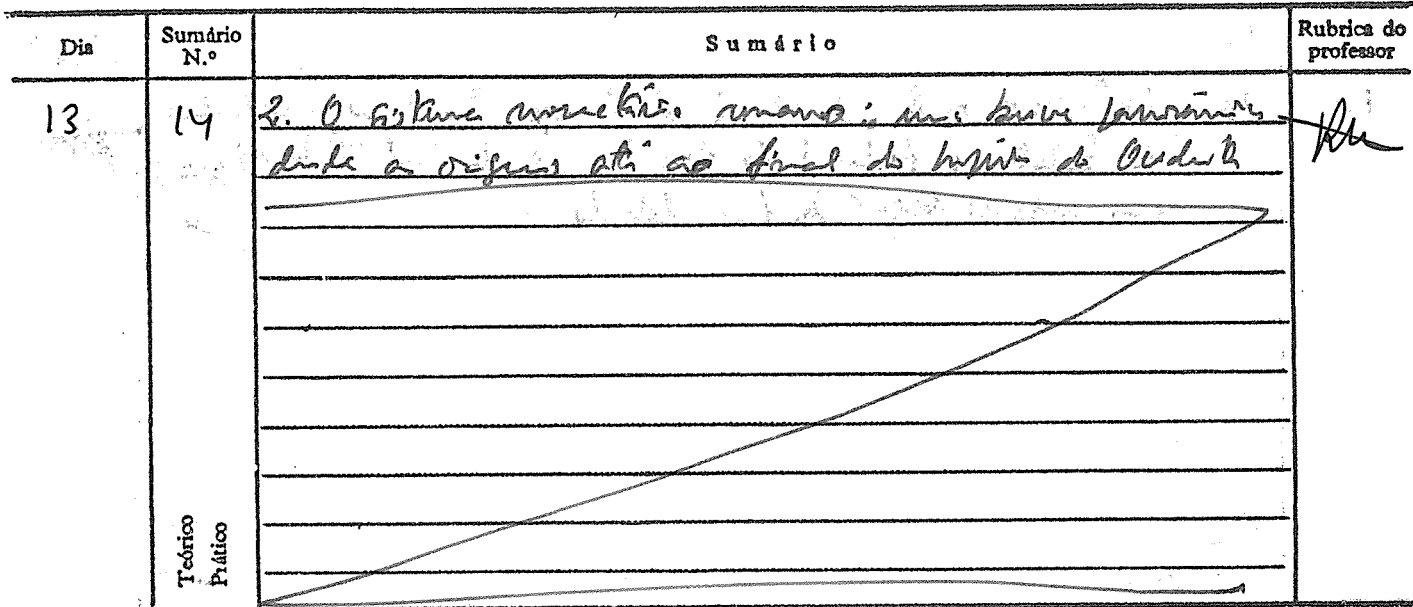 Dia
Sumário
N.º
Sumário
Rubrica do
professor
13
14
2. O sistema monetário romano: uma breve panorâmica
desde as origens até ao final do Império do Ocidente
Teórico
Prático